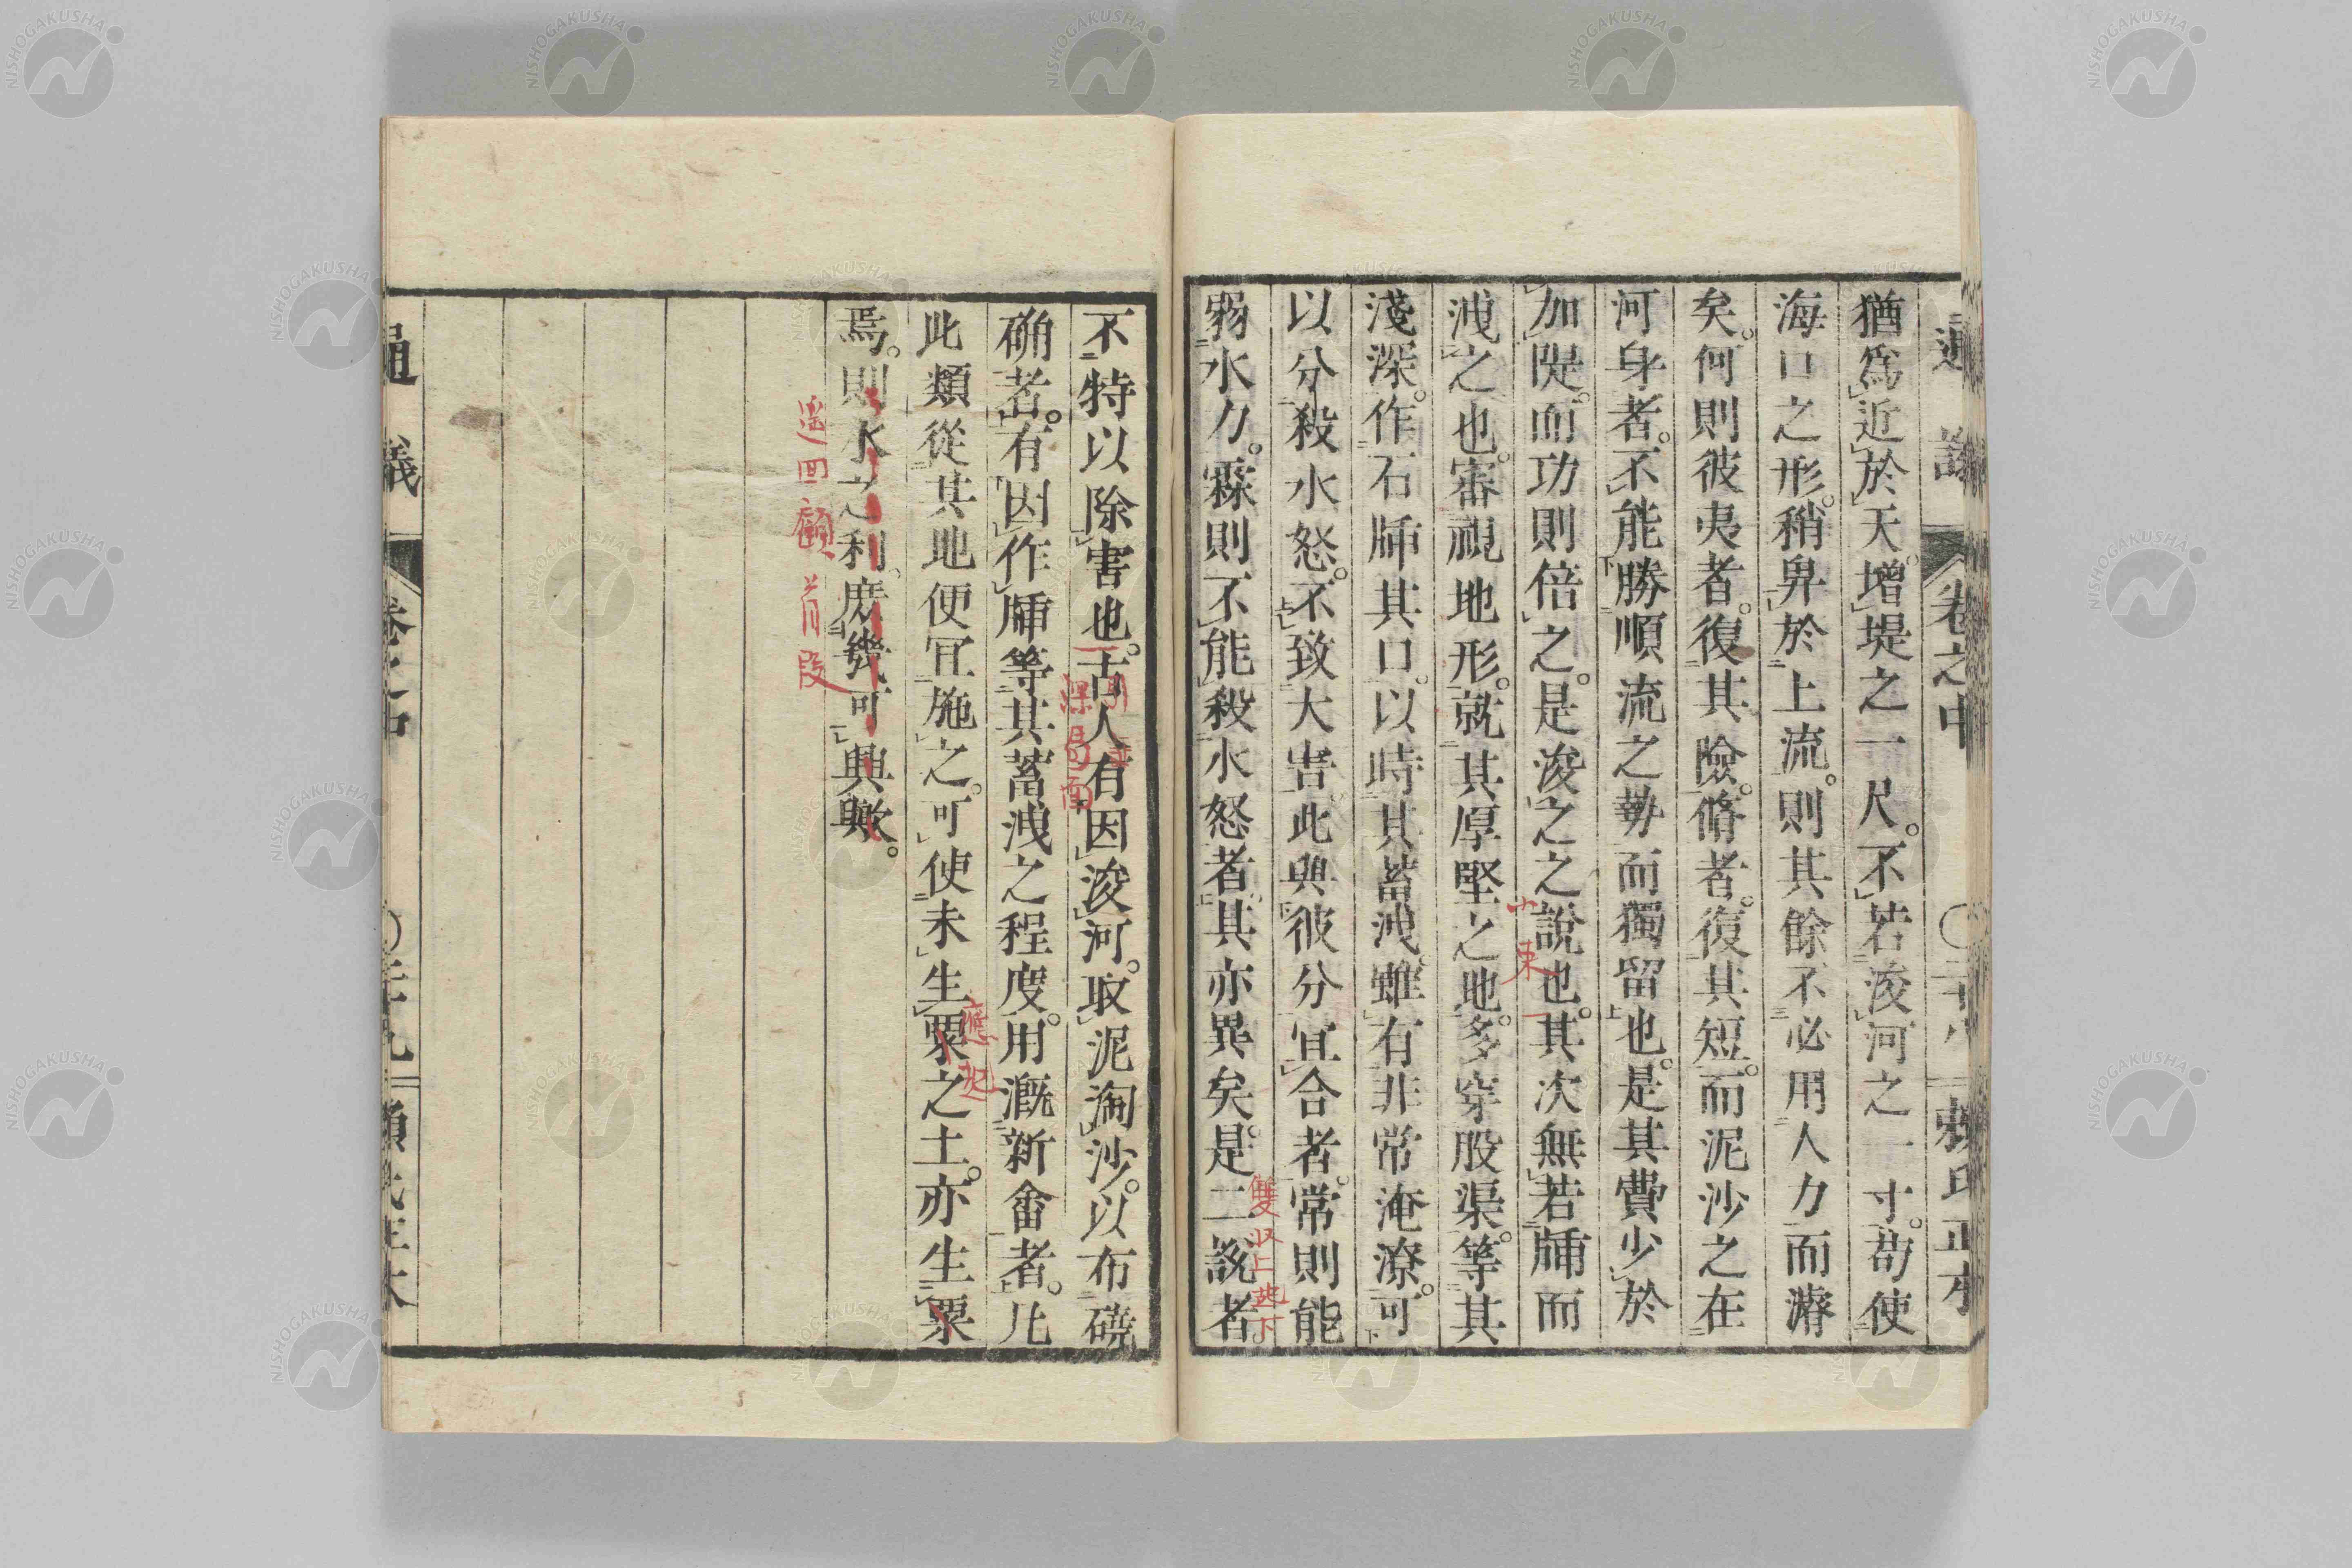 通議 卷之中 〇二十八 賴氏正本
猶爲近於天。增堤之一尺。不若浚河之一寸。苟使
海口之形。稍畀於上流。則其餘不必用人力而濬
矣。何則彼夷者。復其險。脩者。復其短。而泥沙之在
河身者。不能勝順流之勢而獨留也。是其費少於
加隄。而功則倍之。是浚之之說也。其次無若牐而
洩之也。審視地形。就其厚堅之地。多穿股渠。等其
淺深。作石牐其口。以時其蓄洩。雖有非常淹潦。可
以分殺水怒。不致大害。此與彼分宜合者。常則能
弱水力。霖則不能殺水怒者。其亦異矣。是二說者
小束
雙收上起下
不特以除害也。古人有因浚河。取泥淘沙。以布磽
确者。有因作牐等其蓄洩之程度。用漑新畬者。凡
此類從其地便宜施之。可使未生粟之土。亦生粟
焉。則水之利。庶幾可興歟。
深局面
應起
遥回顧首段
通議 卷之中 〇二十九 賴氏正本